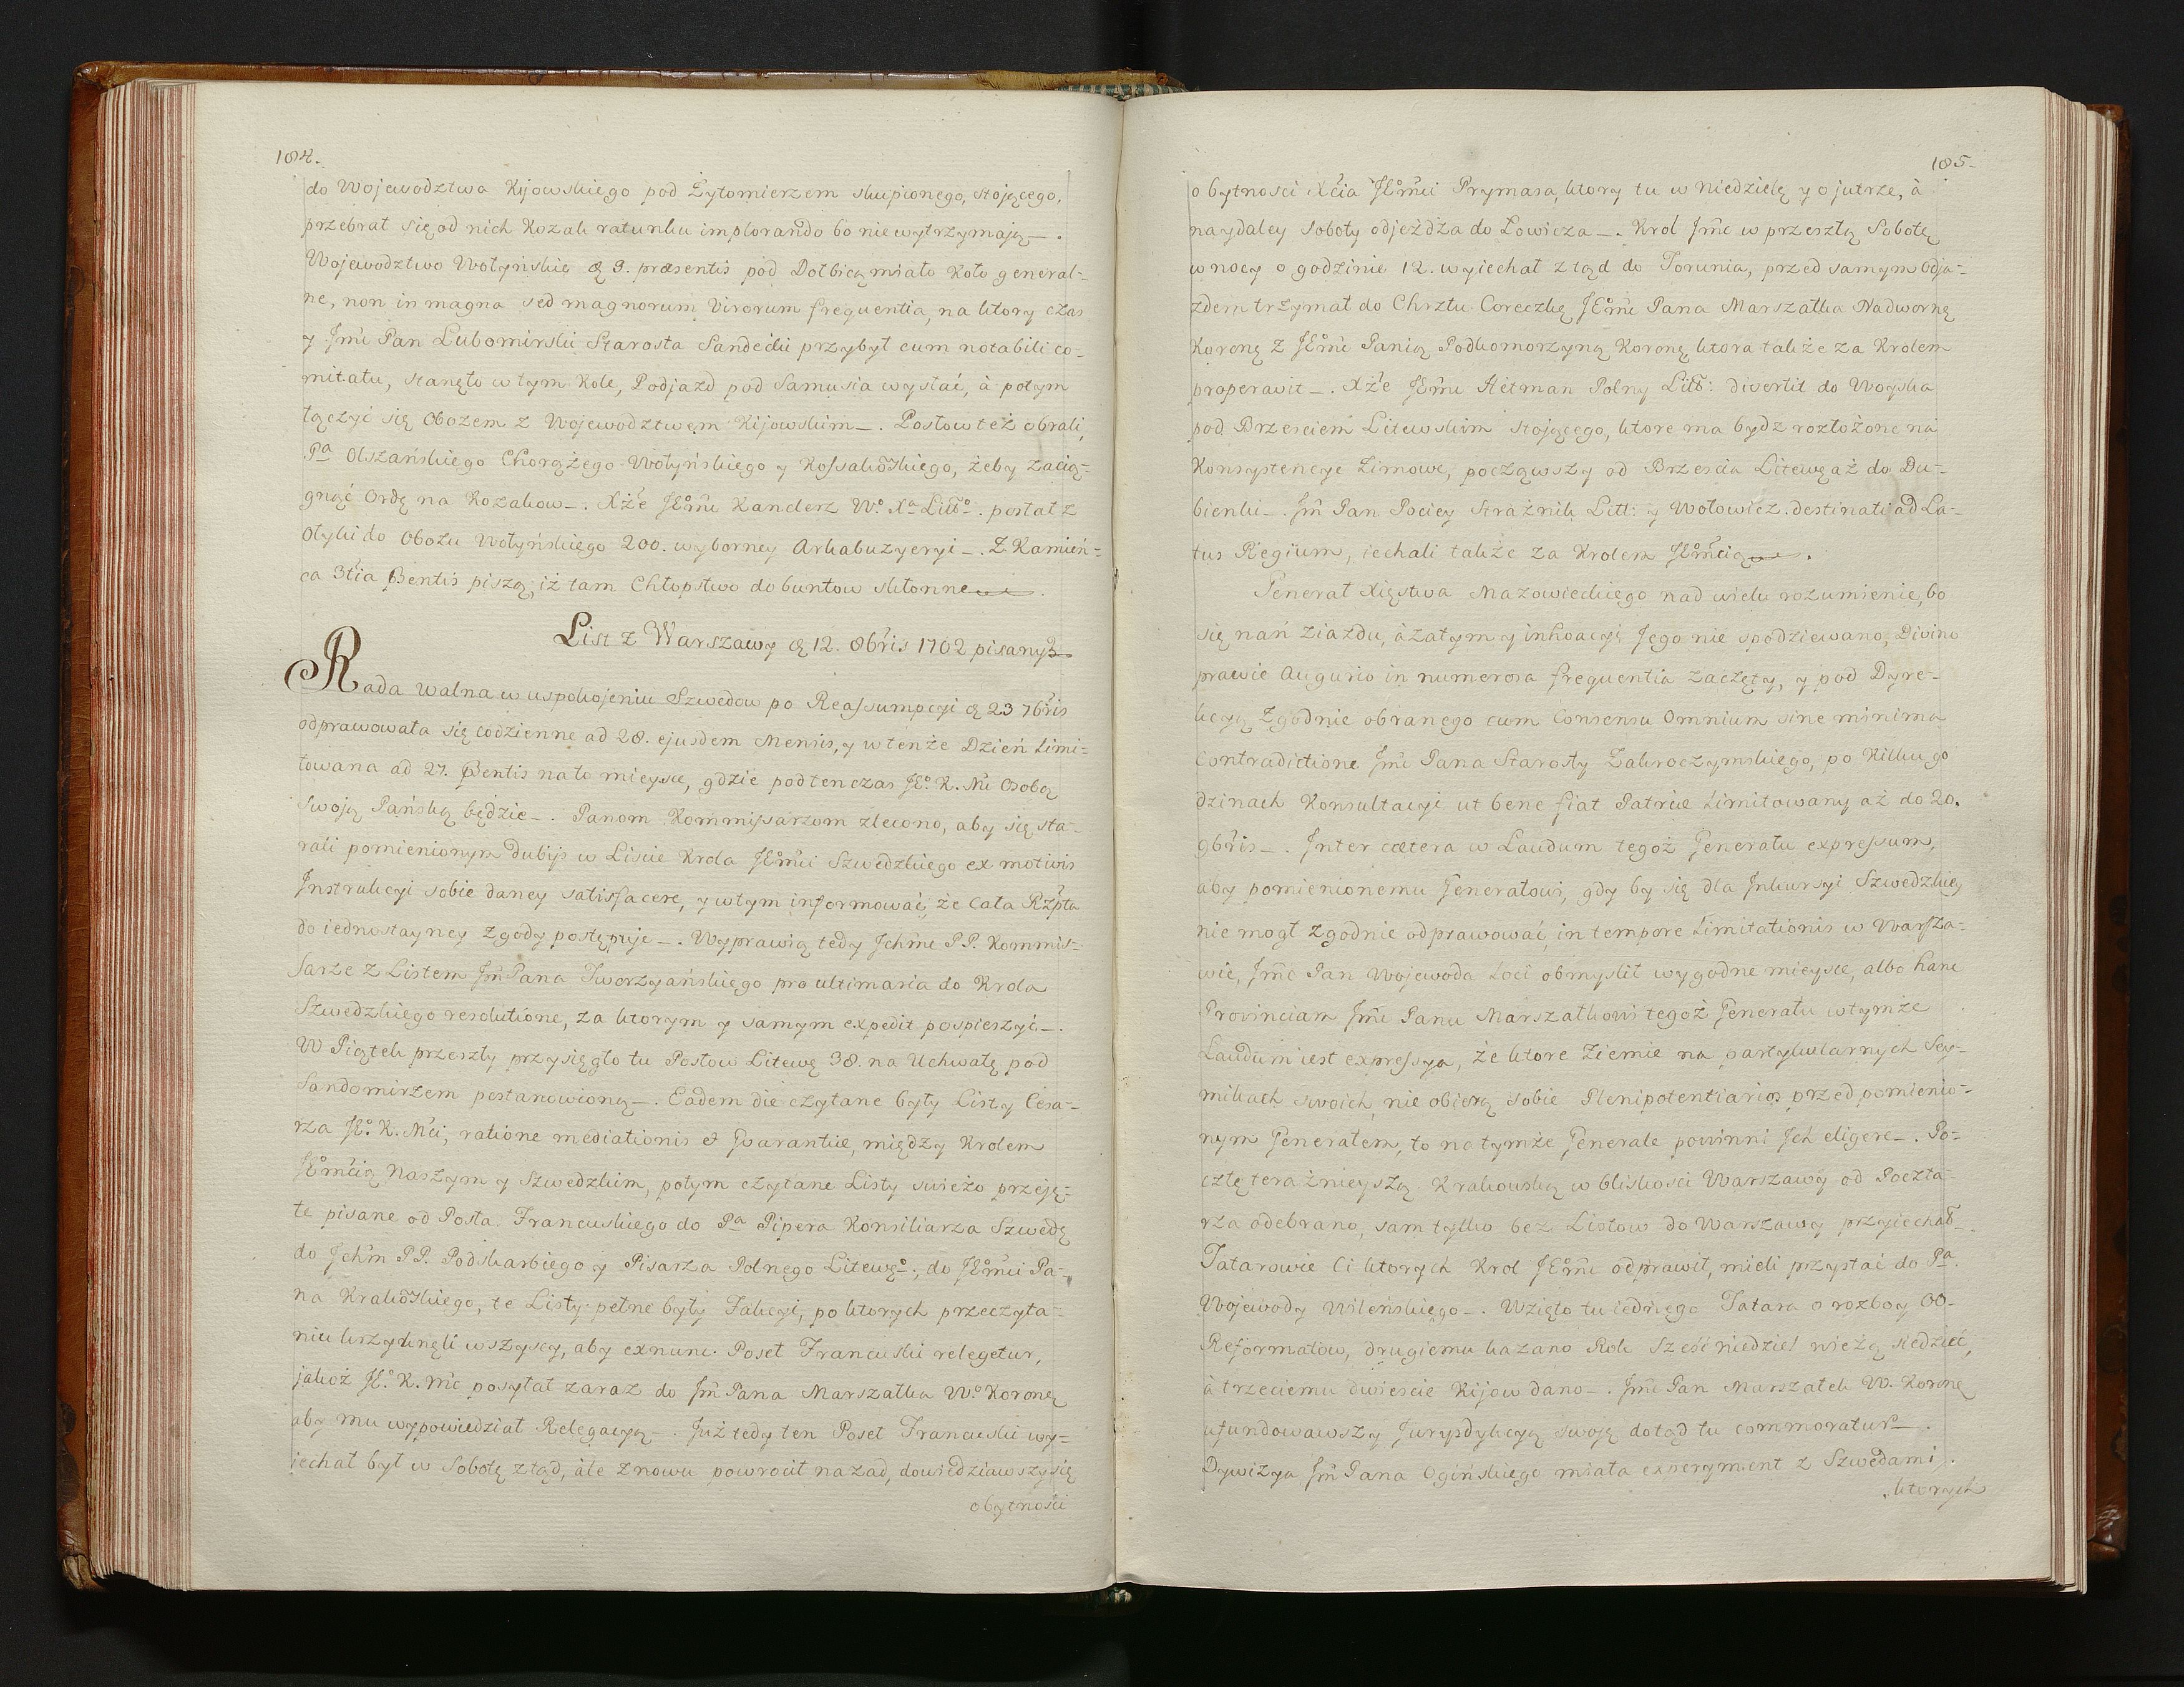 184.
do Wojewodztwa Kijowskiego pod Żytomierzem skupionego, stojącego,
przebrał się od nich Kozak ratunku implorando bo nie wytrzymają_.
Wojewodztwo Wołyńskie 9. præsentis pod Dolbicą miało Koło general=
ne, non in magna sed magnorum Virorum frequentia, na ktory czas
y Jmć Pan Lubomirski Starosta Sandecki przybył cum notabili co=
mitatu, stanęło w tym Kole, Podjazd pod Samusia wysłać, à potym
łączyć się Obozem z Wojewodztwem Kijowskim_. Posłow też obrali,
Pa Olszańskiego Chorążego Wołyńskiego y Kossakõskiego, żeby zacią=
gnąć Ordę na Kozakow_. Xże JEomć Kanclerz Wo. Xa Litto. posłał z
Ołyki do Obozu Wołyńskiego 200. wyborney Arkabuzyeryi_. Z Kamień=
ca 3tia Pentis piszą, iż tam Chłopstwo do buntow skłonne_.
List z Warszawy 12. 8bris 1702 pisany
Rada walna w uspokojeniu Szwedow po Reassumpcyi 23 7bris
odprawowała się codzienne ad 28. ejusdem Mensis, y w tenże Dzień limi=
towana ad 27. Pentis na to mieysce, gdzie podtenczas JEo. K. Mć Osobą
swoją Pańską będzie_. Panom Kommissarzom zlecono, aby się sta=
rali pomienionym dubijs w Liscie Krola JEomći Szwedzkiego ex motivis
Instrukcyi sobie daney satisfacere, y w tym informować, że cała Rzpta
do iednostayney zgody postępuje_. Wyprawią tedy Jchmć PP. Kommis=
sarze z Listem Jm Pana Tworzyańskiego pro ultimaria do Krola
Szwedzkiego resolutione, za ktorym y samym expedit pospieszyć_.
W Piątek przeszły przysięgło tu Posłow Litewę 38. na Uchwałę pod
Sandomirzem postanowioną_. Eadem die czytane były Listy Cesa=
rza JEo. K. Mći, ratione mediationis et Guarantiæ, między Krolem
JEomćią Naszym y Szwedzkim, potym czytane Listy swieżo przeję=
te pisane od Posła Francuskiego do Pa Pipera Konsiliarza Szwedę
do Jchm PP. Podskarbiego y Pisarza Polnego Litewgo., do JEomći Pa=
na Krakõskiego, te Listy pełne były Fakcyi, po ktorych przeczyta=
niu krzyknęli wszyscy, aby exnunc Poseł Francuski relegetur,
jakoż JEo. K. Mć posyłał zaraz do Jm Pana Marszałka Wo Koronę
aby mu wypowiedział Relegacyą_. Już tedy ten Poseł Francuski wy=
iechał był w Sobotę ztąd, ale znowu powrocił nazad, dowiedziawszy się
obytnosci
185.
o bytnosci Xćia JEomći Prymasa, ktory tu w niedzielę y o jutrze, à
naydaley Soboty odjeżdża do Łowicza_. Krol Jmć w przeszłą Sobotę
w nocy o godzinie 12. wyiechał ztąd do Torunia, przed samym odja=
zdem trzymał do Chrztu Coreczkę JEomć Pana Marszałka Nadwornę
Koronę z JEomć Panią Podkomorzyną Koronę ktora także za Krolem
properavit_. Xże JEomć Hetman Polny Litt: divertit do Woyska
pod Brzesciem Litewskim stojącego, ktore ma bydz rozłożone na
Konsystencye Zimowe, począwszy od Brzescia Litewę aż do Du=
bienki_. Jm Pan Pociey Strażnik Litt: y Wołowicz destinati ad La=
tus Regium, iechali także za Krolem JEomćią_.
Generał Xięstwa Mazowieckiego nad wielu rozumienie, bo
się nań ziazdu, à zatym y inhoacyi Jego nie spodziewano, Divino
prawie Augurio in numerosa frequentia zaczęty, y pod Dyre=
kcyą zgodnie obranego cum Consensu Omnium sine minima
Contradictione Jmć Pana Starosty Zakroczymskiego, po kilku go
dzinach Konsultacyi ut bene fiat Patriæ limitowany aż do 20.
9bris_. Inter cætera w Laudum tegoż Generału expressum,
aby pomienionemu Generałowi, gdy by się dla Inkursyi Szwedzkiey
nie mogł zgodnie odprawować, in tempore limitationis w Warsza=
wie, Jmć Pan Wojewoda loci obmyslił wygodne mieysce, albo hanc
Provinciam Jmć Panu Marszałkowi tegoż Generału w tymże
Laudum iest expressya, że ktore Ziemie na partykularnych Sey=
mikach swoich, nie obiorą sobie Plenipotentiarios przed pomienio=
nym Generałem, to na tymże Generale powinni Jch eligere_. Po=
cztę teraznieyszą Krakowską w bliskosci Warszawy od Poczta=
rza odebrano, sam tylko bez Listow do Warszawy przyiechał_.
Tatarowie Ci ktorych Krol JEomć odprawił, mieli przystać do Pa.
Wojewody Wileńskiego_. Wzięto tu iednego Tatara o rozboy OO.
Reformatow, drugiemu kazano Rok szesć niedziel wieżą siedzieć,
à trzeciemu dwiescie Kijow dano_. Jmć Pan Marszałek W. Koronę
ufundowawszy Jurysdykcyą swoję dotąd tu commoratur_.
Dywizya Jm Pana Ogińskiego miała experyment z Szwedami.
ktorych